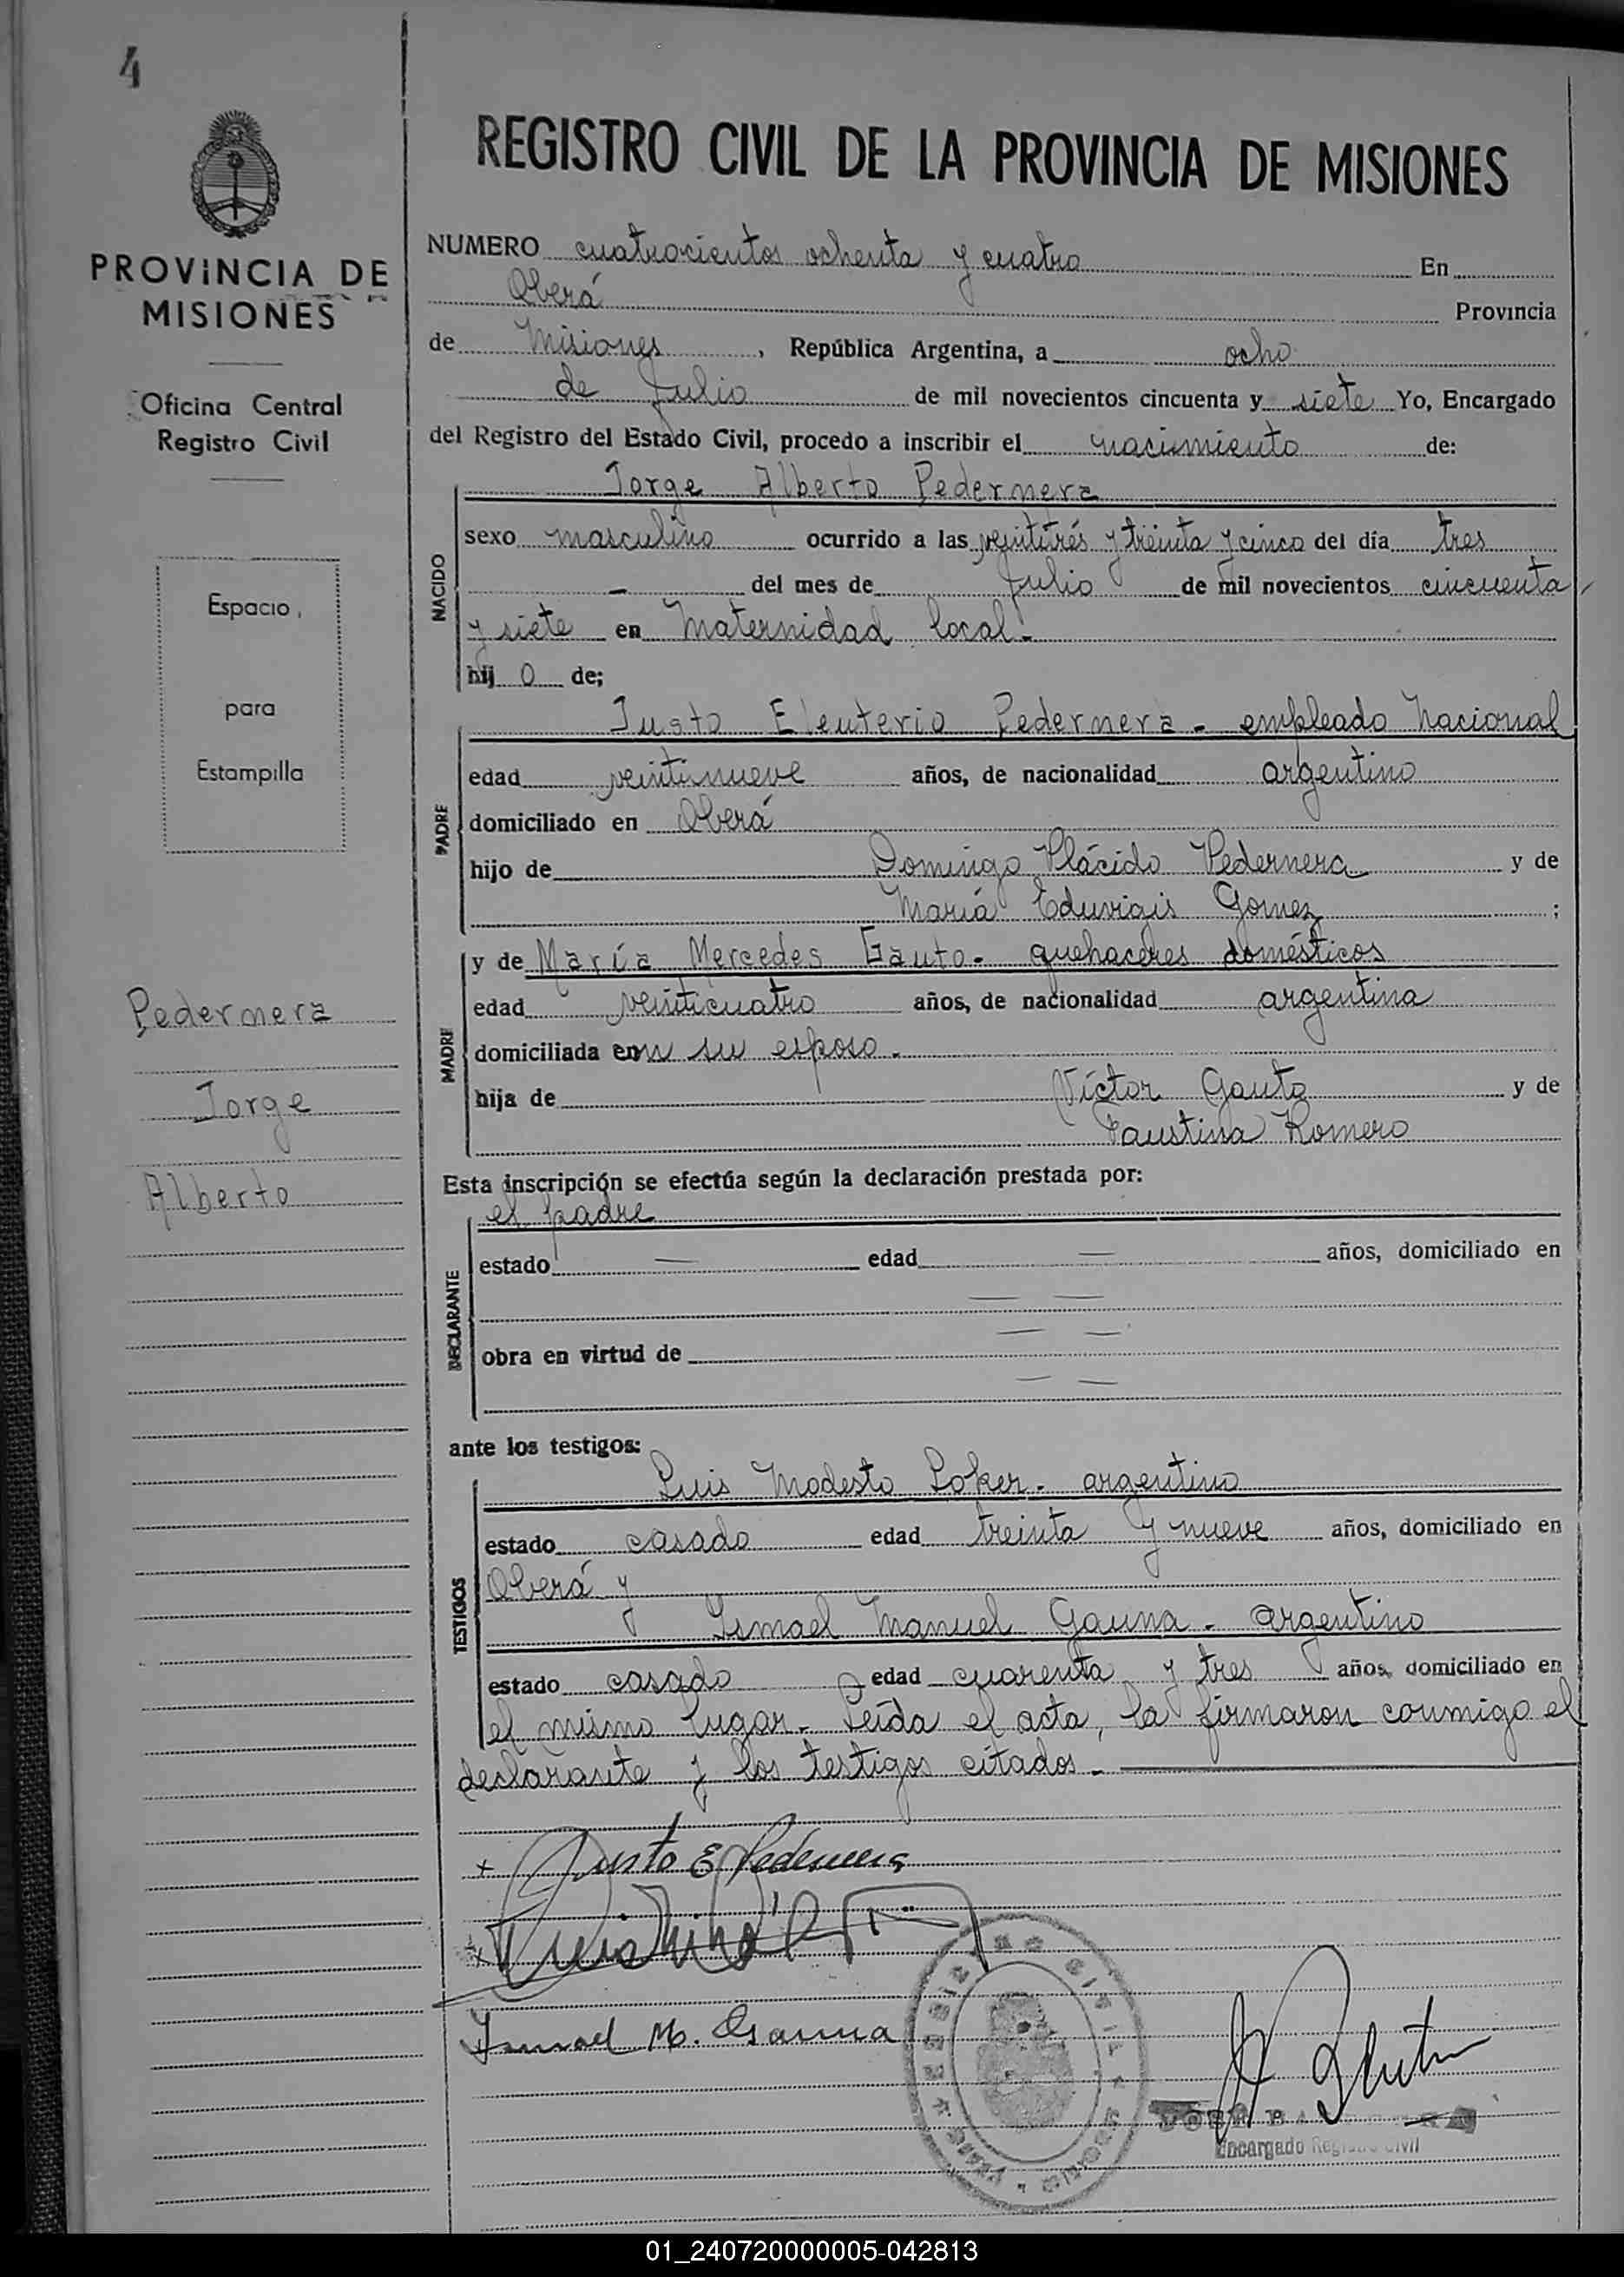 4
REGISTRO CIVIL DE LA PROVINCIA DE MISIONES
PROVINCIA DE
MISIONES
Oficina Central
Registro Civil
Espacio
para
Estampilla
Pedernera
Jorge
Alberto
NUMERO cuatrocientos ochenta y cuatro En
Oberá Provincia
de Misiones, República Argentina, a ocho
de Julio de mil novecientos cincuenta y siete Yo, Encargado
del Registro del Estado Civil, procedo a inscribir el nacimiento de:
Jorge Alberto Pedernera
NACIDO
sexo masculino ocurrido a las veintitrés y treinta y cinco del día tres
— del mes de Julio de mil novecientos cincuenta
y siete en Maternidad local.-
hijo de;
Justo Eleuterio Pedernera - empleado Nacional
PADRE
edad veintinueve años, de nacionalidad argentino
domiciliado en Oberá
hijo de Domingo Plácido Pedernera y de
María Eduvigis Gomez ;
MADRE
y de María Mercedes Gauto - quehaceres domésticos
edad veinticuatro años, de nacionalidad argentina
domiciliada con su esposo.
hija de Víctor Gauto y de
Faustina Romero
Esta inscripción se efectúa según la declaración prestada por:
el padre
DECLARANTE
estado — edad — años, domiciliado en
— —
obra en virtud de — —
— —
ante los testigos:
Luis Modesto Poker - argentino
TESTIGOS
estado casado edad treinta y nueve años, domiciliado en
Oberá y
Ismael Manuel Gauna - argentino
estado casado edad cuarenta y tres años, domiciliado en
el mismo lugar. Leída el acta, la firmaron conmigo el
declarante y los testigos citados.-
+ Justo E Pedernera
Ismael M. Gauna
Encargado Registro Civil
01_240720000005-042813